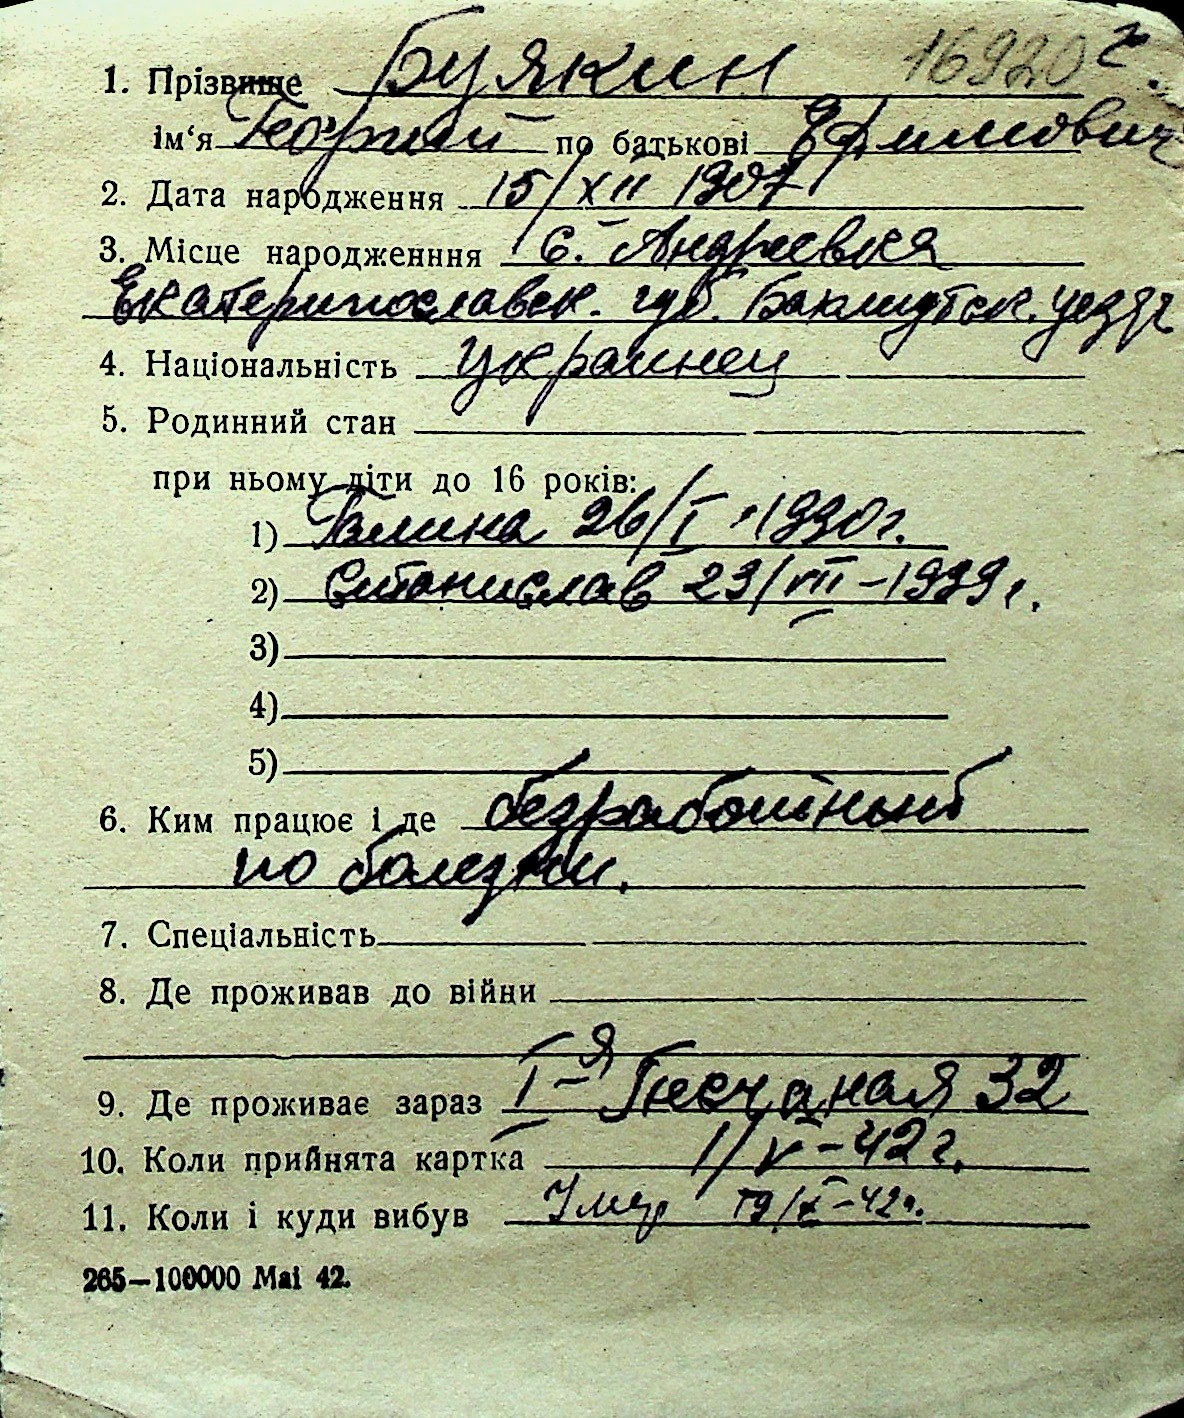 16920
1. Прізвище Буякин
ім‘я Георгий по батькові Ефимович
2. Дата народження 15/XII 1907
3. Місце народженння с. Андреевка
Екатеринославск. губ. Бахмутск. уезда
4. Національність украинец
5. Родинний стан
при ньому діти до 16 років:
1) Галина 26/I 1930г.
2) Станислав 23/VII-1939г.
3)
4)
5)
6. Ким працює і де безработный
по болезни.
7. Спеціальність
8. Де проживав до війни
9. Де проживає зараз I-я Песчаная 32
10. Коли прийнята картка 1/V-42г.
11. Коли і куди вибув Умер 19/X-42г.
265—100000 Маі 42.